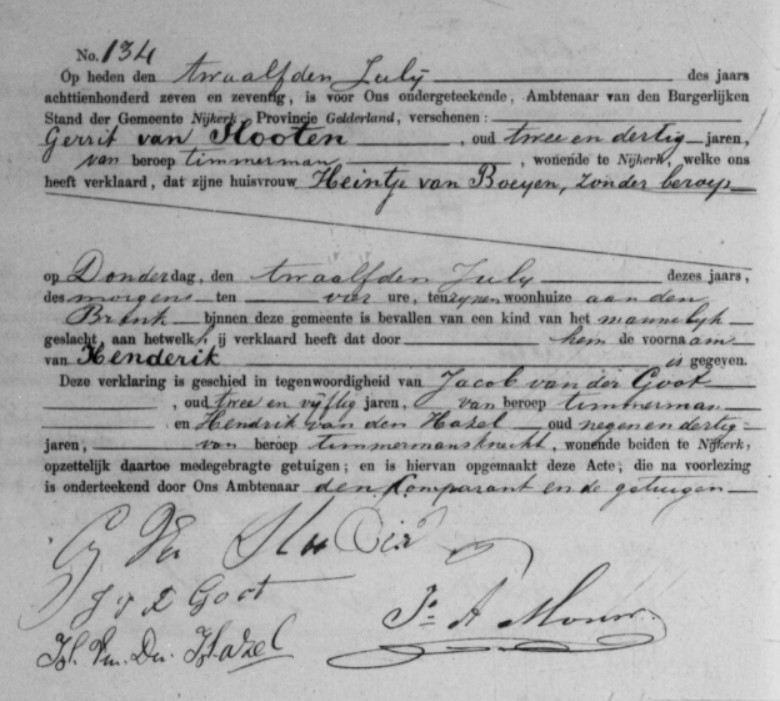 No. 134
Op heden den twaalfden July des jaars
achttienhonderd zeven en zeventig, is voor Ons ondergeteekende, Ambtenaar van den Burgerlijken
Stand der Gemeente Nijkerk, Provincie Gelderland, verschenen:
Gerrit van Slooten, oud twee en dertig jaren,
van beroep timmerman, wonende te Nijkerk, welke ons
heeft verklaard, dat zijne huisvrouw Heintje van Boeyen, zonder beroep
op Donderdag, den twaalfden July dezes jaars,
des morgens ten vier ure, ten zijnen woonhuize aan den
Brink binnen deze gemeente is bevallen van een kind van het mannelyk
geslacht, aan hetwelk hij verklaard heeft dat door hem de voornaam
van Henderik is gegeven.
Deze verklaring is geschied in tegenwoordigheid van Jacob van der Goot
, oud twee en vijftig jaren, van beroep timmerman
en Hendrik van den Hazel oud negen en dertig
jaren, van beroep timmermansknecht, wonende beiden te Nijkerk,
opzettelijk daartoe medegebragte getuigen; en is hiervan opgemaakt deze Acte, die na voorlezing
is onderteekend door Ons Ambtenaar den Komparant en de getuigen
J v d Goot
H. Van Den Hazel